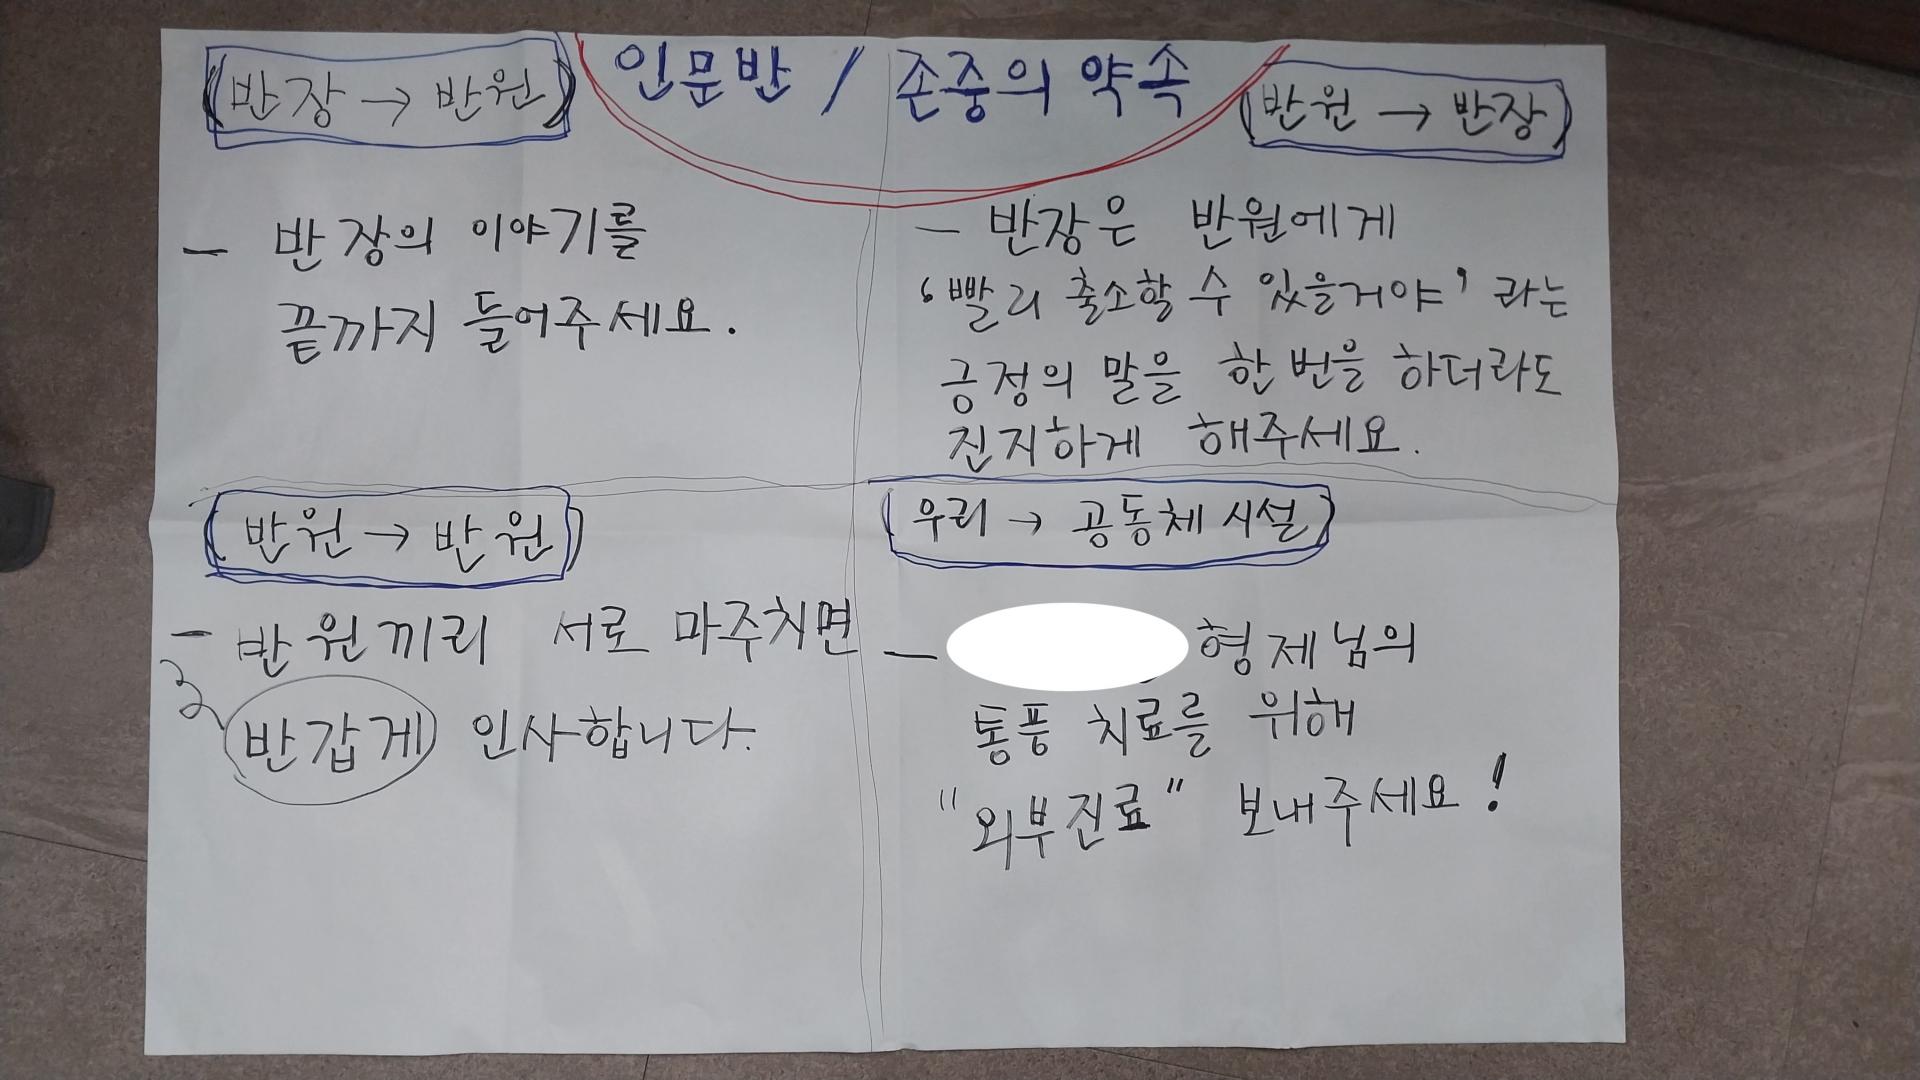 인문반 / 존중의 약속
(반장 → 반원)
- 반장의 이야기를
끝까지 들어주세요.
(반원 → 반장)
- 반장은 반원에게
'빨리 출소할 수 있을거야' 라는
긍정의 말을 한번을 하더라도
진지하게 해주세요.
(반원 → 반원)
- 반원끼리 서로 마주치면
반갑게 인사합니다.
(우리 → 공동체 시설)
- 형제님의
통풍 치료를 위해
"외부진료" 보내주세요!